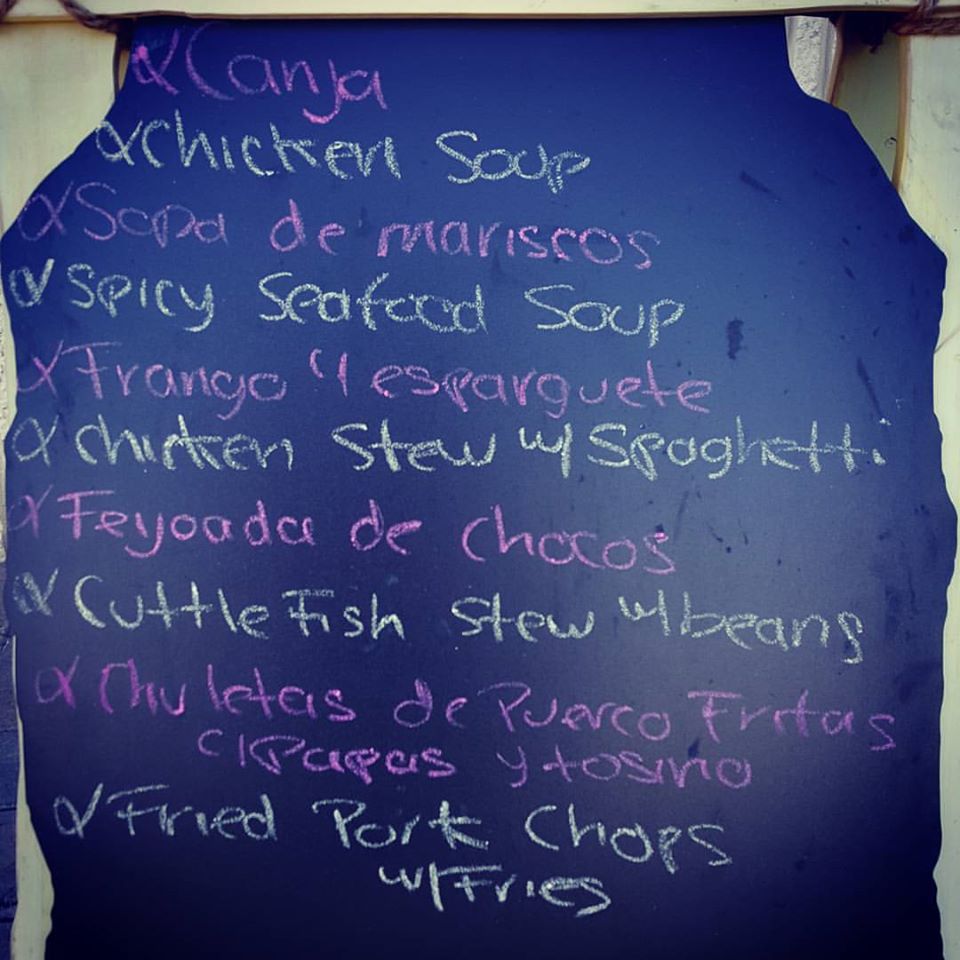 Canja
Chicken Soup
Sopa de mariscos
Spicy Seafood Soup
Frango y esparguete
chicken Stew w/ Spaghetti
Feyoada de chocos
Cuttle Fish Stew w/ beans
Chuletas de Puerco Fritas
c/ Papas y tosino
Fried Pork Chops
w/ Fries